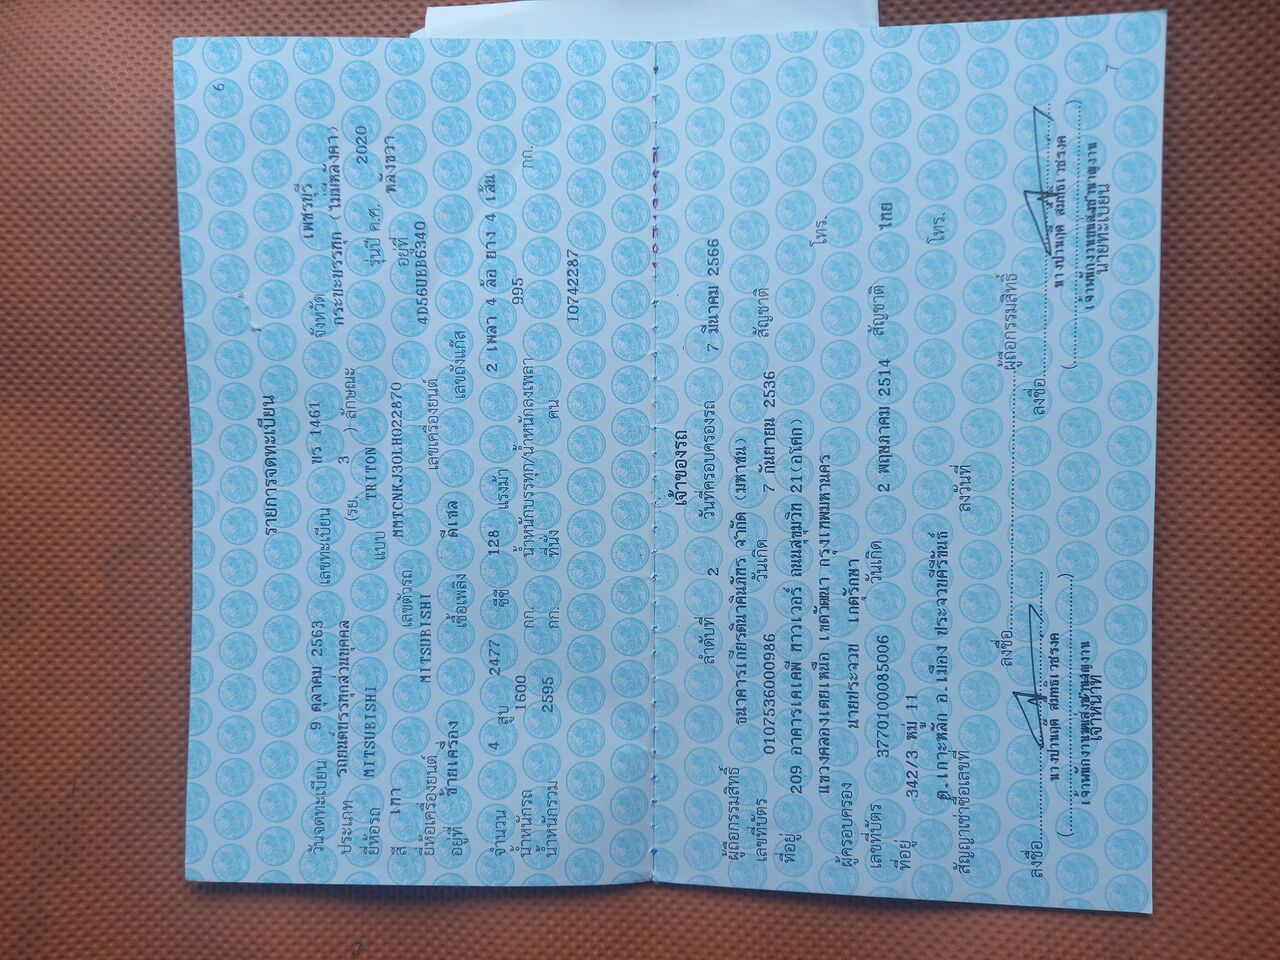 6
รายการจดทะเบียน
วันจดทะเบียน 9 ตุลาคม 2563 เลขทะเบียน 1461 จังหวัด เพชรบุรี
ประเภท รถยนต์บรรทุกส่วนบุคคล (รย. 3 ) ลักษณะ กระบะบรรทุก (ไม่มีหลังคา)
ยี่ห้อรถ MITSUBISHI แบบ TRITON รุ่นปี ค.ศ. 2020
สี เทา เลขตัวรถ MMTCNKJ30LH022870 อยู่ที่ หลังขวา
ยี่ห้อเครื่องยนต์ MITSUBISHI เลขเครื่องยนต์ 4D56UBB6340
อยู่ที่ ซ้ายเครื่อง เชื้อเพลิง ดีเซล เลขถังแก๊ส
จำนวน 4 สูบ 2477 ซีซี 128 แรงม้า 2 เพลา 4 ล้อ ยาง 4 เส้น
น้ำหนักรถ 1600 กก. น้ำหนักบรรทุก/น้ำหนักลงเพลา 995 กก.
น้ำหนักรวม 2595 กก. ที่นั่ง คน
10742287
เจ้าของรถ
ลำดับที่ 2 วันที่ครอบครองรถ 7 มีนาคม 2566
ผู้ถือกรรมสิทธิ์ ธนาคารเกียรตินาคินภัทร จำกัด (มหาชน)
เลขที่บัตร 0107536000986 วันเกิด 7 กันยายน 2536 สัญชาติ
ที่อยู่ 209 อาคารเคเคพี ทาวเวอร์ ถนนสุขุมวิท 21(อโศก)
แขวงคลองเตยเหนือ เขตวัฒนา กรุงเทพมหานคร โทร.
ผู้ครอบครอง นายประจวบ เกตุรักษา
เลขที่บัตร 3770100085006 วันเกิด 2 พฤษภาคม 2514 สัญชาติ ไทย
ที่อยู่ 342/3 หมู่ 11
ต.เกาะหลัก อ.เมือง ประจวบคีรีขันธ์ โทร.
สัญญาเช่าซื้อเลขที่ ลงวันที่
ลงชื่อ ผู้ถือกรรมสิทธิ์
ลงชื่อ ลงชื่อ
เจ้าหน้าที่ นายทะเบียน
7